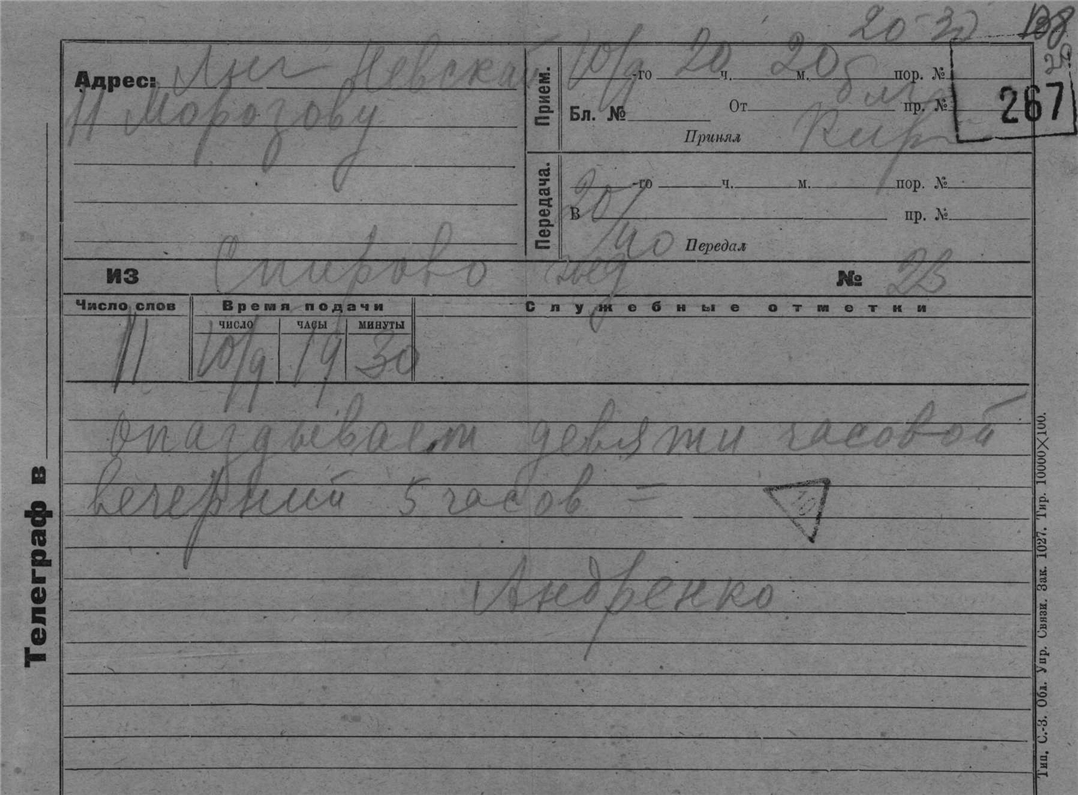 20-30
267
Адрес: Лнг Невская
11 Морозову
Прием.
10/9 -го 20 ч. 20 м. пор. №
Бл. № От пр. №
Принял
Передача.
-го ч. м. пор. №
В пр. №
20/40
Передал
ИЗ Спирово № 23
Число слов Время подачи Служебные отметки
число часы минуты
11 10/9 19 30
опаздывает девяти часовой
вечерний 5 часов =
Андренко
Телеграф в
Тип. С.-З. Обл. Упр. Связи. Зак. 1027. Тир. 10000×100.